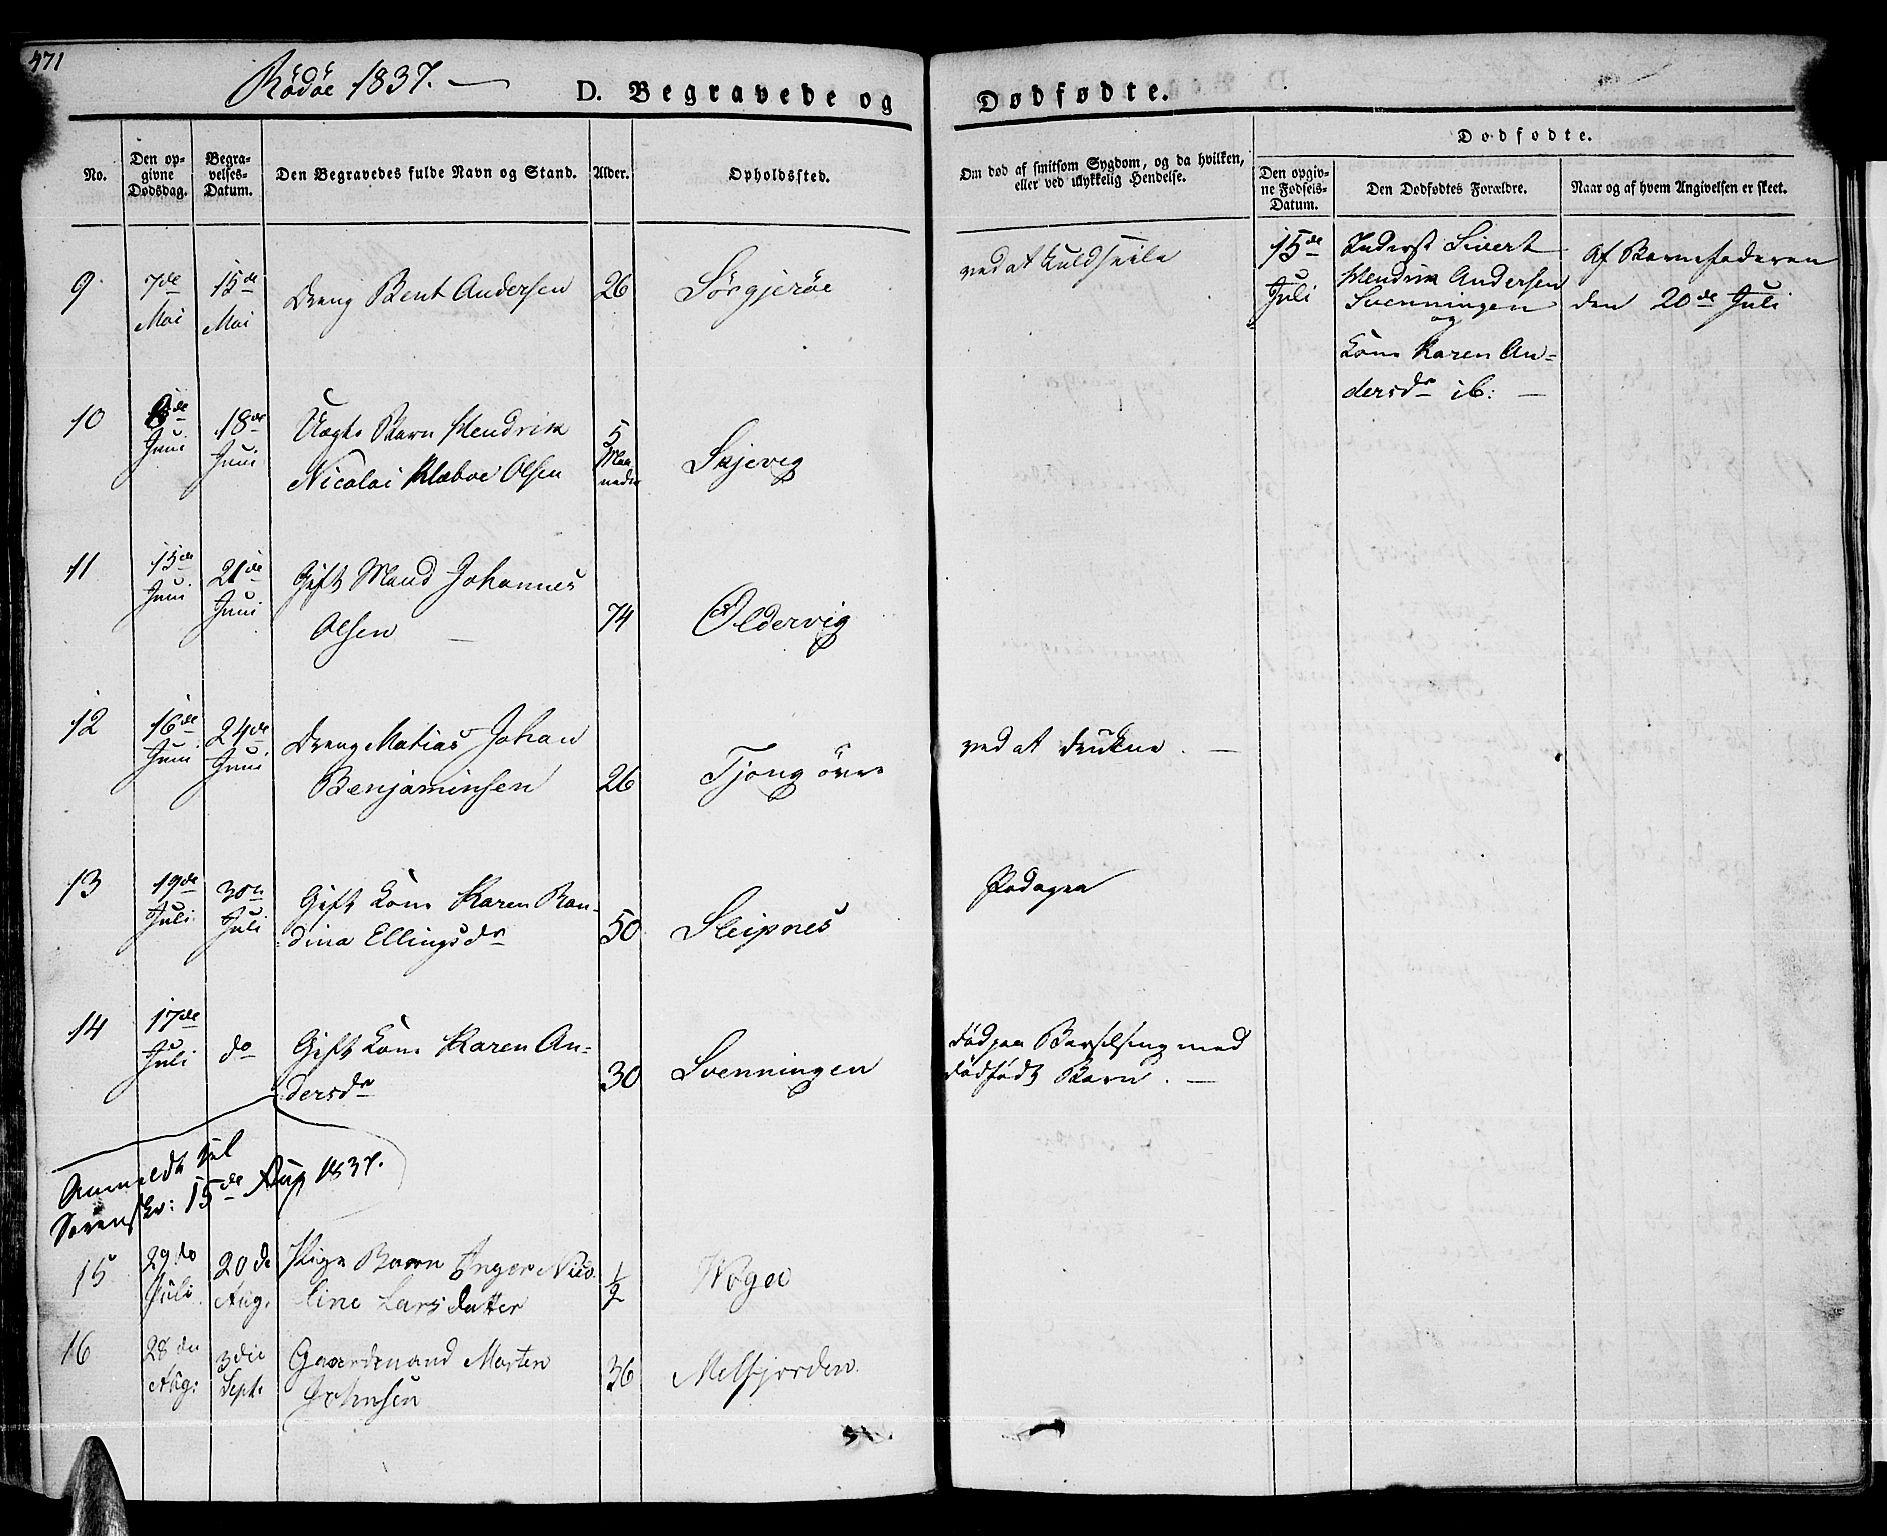 471
Rødøe 1837.
D. Begravede og Dødfødte.
No.
Den opgivne Dødsdag.
Begravelses-Datum.
Den Begravedes fulde Navn og Stand.
Alder.
Opholdssted.
Om død af smitsom Sygdom, og da hvilken,
eller ved ulykkelig Hendelse.
Dødfødte.
Den opgivne Fødsels-Datum.
Den Dødfødtes Forældre.
Naar og af hvem Angivelsen er skeet.
9. 7de Mai 15de Mai Dreng Bent Andersen 26 Sørgjerøe ved at kuldseile
15de Juli
Inderst Sivert
Hendrik Andersen
Svenningen
og
Kone Karen An-
dersdr ib: —
Af Barnefaderen
den 20de Juli
10 Juni 18de Juni Uægte Barn Hendrik
Nicolai Klæboe Olsen
5 Maaneder Skjevig
11 15de Juni 21de Juni Gift Mand Johannes
Olsen — 74 Oldervig
12 16de Juni 24de Juni Dreng Matias Johan
Benjaminsen 26 Tjong øvre ved at drukne. —
13 19de Juli 30te Juli Gift Kone Karen Ran-
dina Ellingsdr 50 Sleipnes Podagra
14 17de Juli do Gift Kone Karen An-
dersdr 30 Svenningen død paa Barselseng med
dødfødt Barn. —
Anmeldt til
Sorenskr: 15de Aug 1837.
15 29de Juli 20de Aug. Pige Barn Inger Nico
line Larsdatter 1/2 Wågøe
16 28de Aug: 3die Sept: Gaardmand Morten
Johnsen 36 Melfjorden